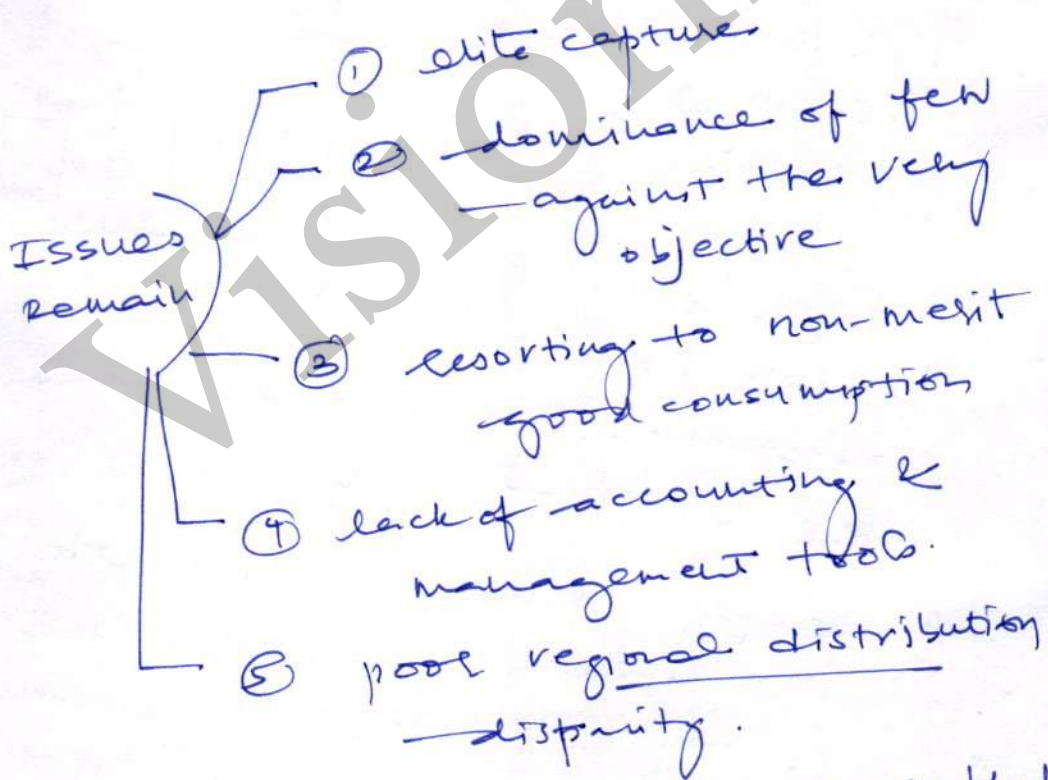 ① elite capture
② dominance of few
— against the very
objective
Issues
Remain
③ resorting to non-merit
good consumption
④ lack of accounting &
management tools.
⑤ poor regional distribution
— disparity.
Vision